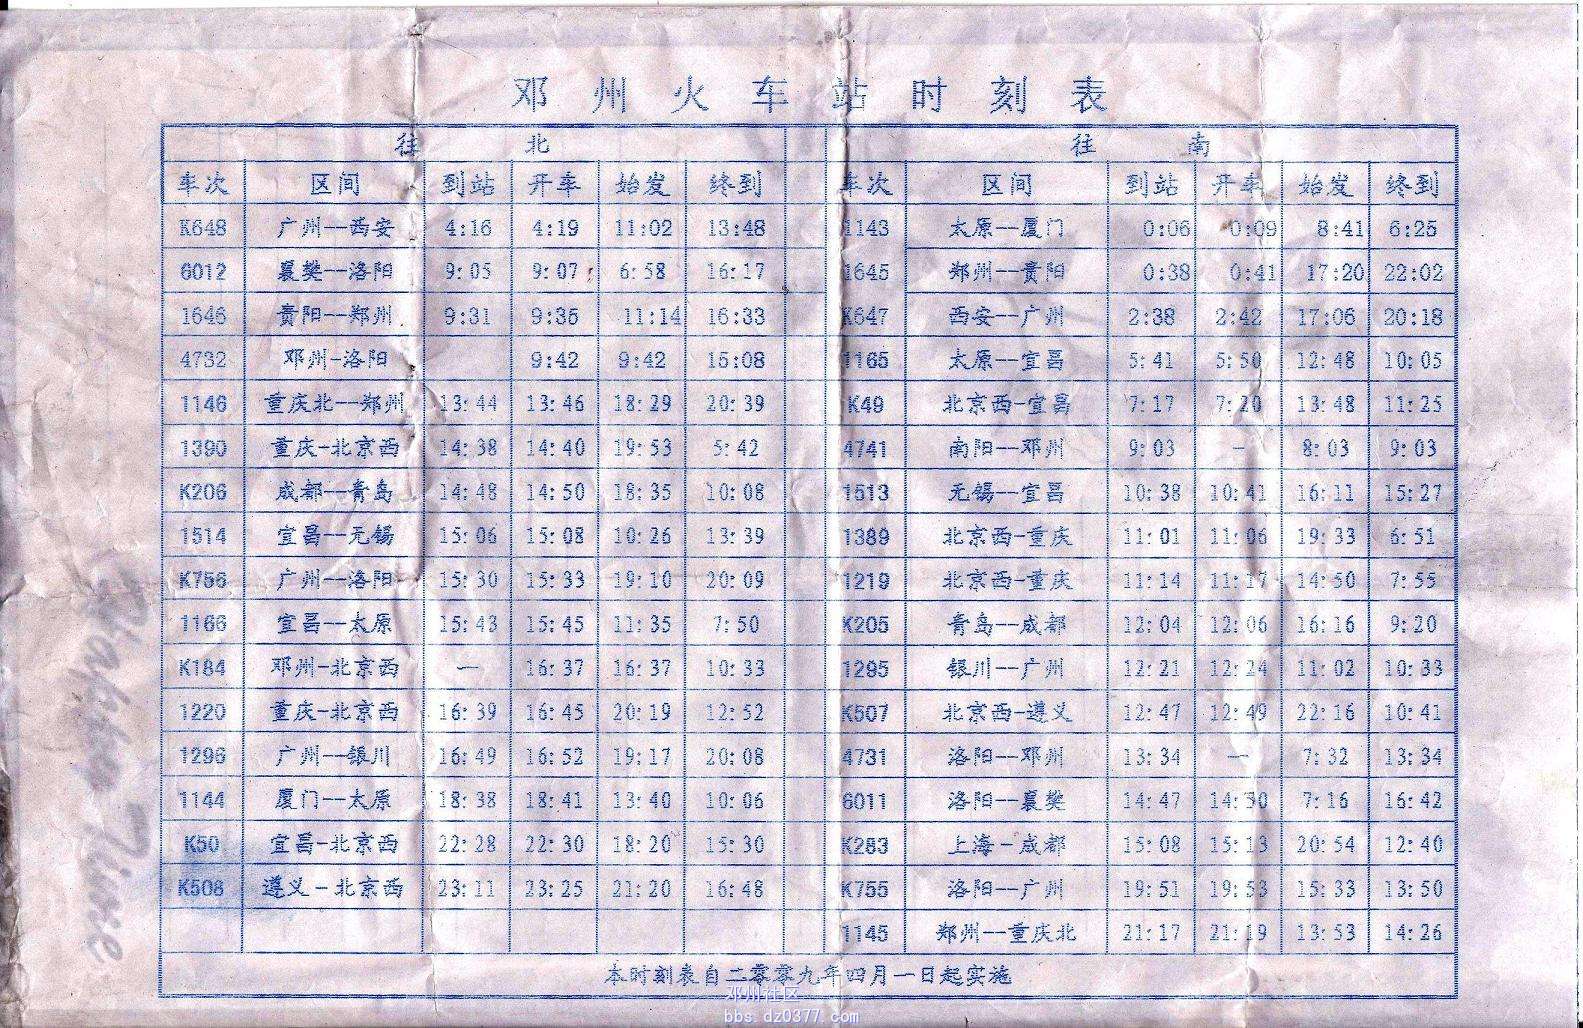 邓州火车站时刻表
往北 往南
车次 区间 到站 开车 始发 终到 车次 区间 到站 开车 始发 终到
K648 广州--西安 4:16 4:19 11:02 13:48 1143 太原--厦门 0:06 0:09 8:41 6:25
6012 襄樊--洛阳 9:05 9:07 6:58 16:17 1645 郑州--贵阳 0:38 0:41 17:20 22:02
1646 贵阳--郑州 9:31 9:35 11:14 16:33 K647 西安--广州 2:38 2:42 17:05 20:18
4732 邓州-洛阳 9:42 9:42 15:08 1165 太原--宜昌 5:41 5:50 12:48 10:05
1146 重庆北--郑州 13:44 13:46 18:29 20:39 K49 北京西-宜昌 7:17 7:20 13:48 11:25
1390 重庆-北京西 14:38 14:40 19:53 5:42 4741 南阳--邓州 9:03 — 8:03 9:03
K206 成都--青岛 14:48 14:50 18:35 10:08 1513 无锡--宜昌 10:38 10:41 16:11 15:27
1514 宜昌--无锡 15:06 15:08 10:26 13:39 1389 北京西-重庆 11:01 11:06 19:33 6:51
K756 广州--洛阳 15:30 15:33 19:10 20:09 1219 北京西-重庆 11:14 11:17 14:50 7:55
1166 宜昌--太原 15:43 15:45 11:35 7:50 K205 青岛--成都 12:04 12:06 16:16 9:20
K184 邓州-北京西 — 16:37 16:37 10:33 1295 银川--广州 12:21 12:24 11:02 10:33
1220 重庆-北京西 16:39 16:45 20:19 12:52 K507 北京西-遵义 12:47 12:49 22:16 10:41
1296 广州--银川 16:49 16:52 19:17 20:08 4731 洛阳--邓州 13:34 — 7:32 13:34
1144 厦门--太原 18:38 18:41 13:40 10:06 6011 洛阳--襄樊 14:47 14:50 7:16 16:42
K50 宜昌-北京西 22:28 22:30 18:20 15:30 K283 上海-成都 15:08 15:13 20:54 12:40
K508 遵义-北京西 23:11 23:25 21:20 16:48 K755 洛阳--广州 19:51 19:53 15:33 13:50
1145 郑州--重庆北 21:17 21:19 13:53 14:26
本时刻表自二零零九年四月一日起实施
邓州社区
bbs.dz0377.com